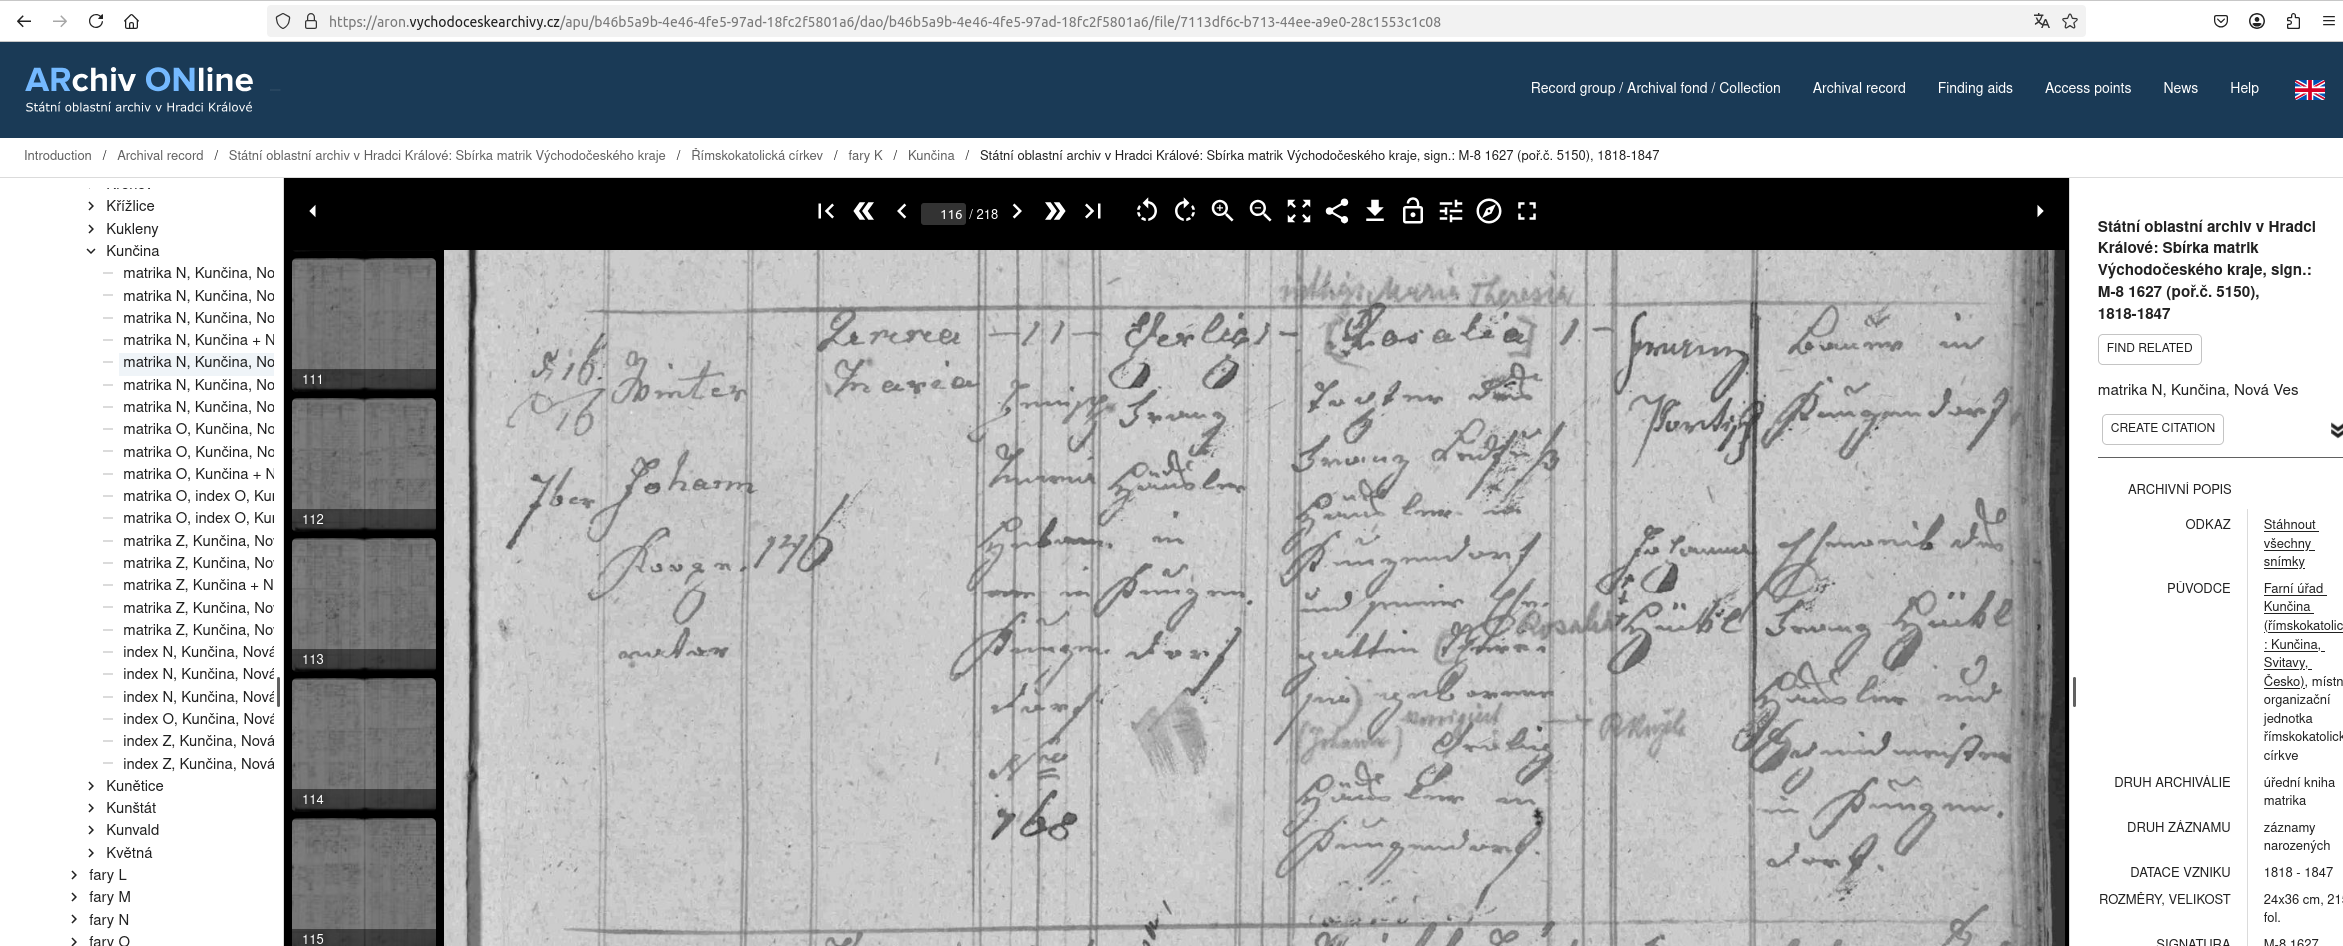 https://aron.vychodoceskearchivy.cz/apu/b46b5a9b-4e46-4fe5-97ad-18fc2f5801a6/dao/b46b5a9b-4e46-4fe5-97ad-18fc2f5801a6/file/7113df6c-b713-44ee-a9e0-28c1553c1c08
ARchiv ONline
Státní oblastní archiv v Hradci Králové
Record group / Archival fond / Collection
Archival record
Finding aids
Access points
News
Help
Introduction / Archival record / Státní oblastní archiv v Hradci Králové: Sbírka matrik Východočeského kraje / Římskokatolická církev / fary K / Kunčina / Státní oblastní archiv v Hradci Králové: Sbírka matrik Východočeského kraje, sign.: M-8 1627 (poř.č. 5150), 1818-1847
Křížlice
Kukleny
Kunčina
matrika N, Kunčina, No
matrika N, Kunčina, No
matrika N, Kunčina, No
matrika N, Kunčina + N
matrika N, Kunčina, No
matrika N, Kunčina, No
matrika N, Kunčina, No
matrika O, Kunčina, No
matrika O, Kunčina, No
matrika O, Kunčina + N
matrika O, index O, Kur
matrika O, index O, Kur
matrika Z, Kunčina, No
matrika Z, Kunčina, No
matrika Z, Kunčina + N
matrika Z, Kunčina, No
matrika Z, Kunčina, No
index N, Kunčina, Nová
index N, Kunčina, Nová
index N, Kunčina, Nová
index O, Kunčina, Nová
index Z, Kunčina, Nová
index Z, Kunčina, Nová
Kunětice
Kunštát
Kunvald
Květná
fary L
fary M
fary N
fary O
116 / 218
111
112
113
114
115
Maria Theresia
Anna
Rosalia
Franz
Bauer in
16
Winter
Maria
Jenisch
Franz
Tochter des
Kunzendorf
Franz
7ber Johann
Häusler
Häusler in
Koope.
146
in
Kunzendorf
Johanna
Eheweib des
in Kunzen
und seiner Ehe
Rosalia
Hückl
Franz Hückl
rator
dorf
gattin
geborene
Häusler und
corrigirt
(Johann)
Nro
768
Häusler in
in Kunzen
Kunzendorf.
dorf.
Státní oblastní archiv v Hradci Králové: Sbírka matrik Východočeského kraje, sign.: M-8 1627 (poř.č. 5150), 1818-1847
FIND RELATED
matrika N, Kunčina, Nová Ves
CREATE CITATION
ARCHIVNÍ POPIS
ODKAZ
Stáhnout
všechny
snímky
PŮVODCE
Farní úřad
Kunčina
(římskokatolic
: Kunčina,
Svitavy,
Česko), místn
organizační
jednotka
římskokatolick
církve
DRUH ARCHIVÁLIE
úřední kniha
matrika
DRUH ZÁZNAMU
záznamy
narozených
DATACE VZNIKU
1818 - 1847
ROZMĚRY, VELIKOST
24x36 cm, 21
fol.
SIGNATURA
M-8 1627